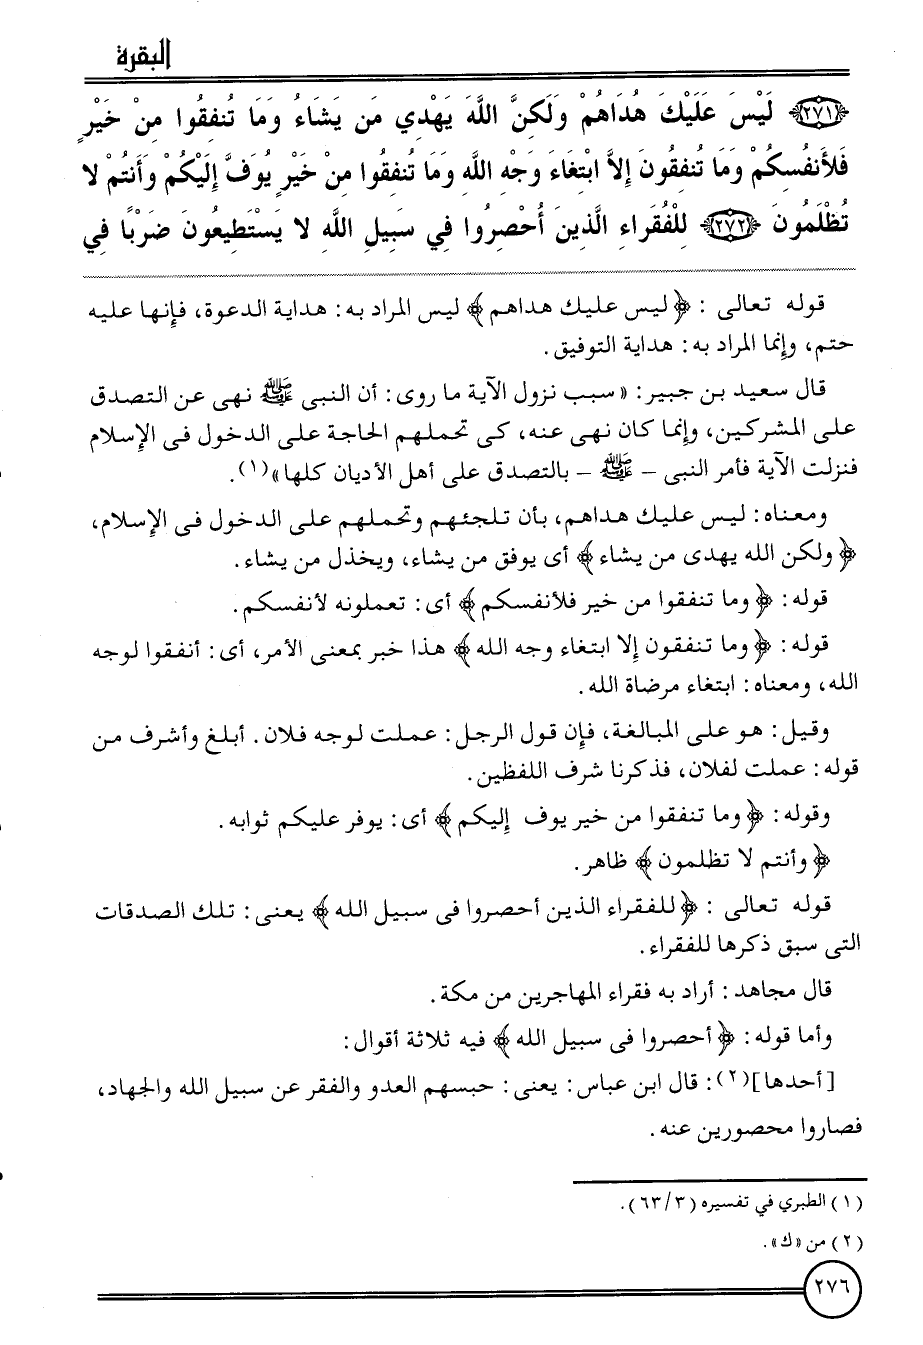 البقرة
﴿٢٧١﴾ لَيْسَ عَلَيْكَ هُدَاهُمْ وَلَكِنَّ اللَّهَ يَهْدِي مَن يَشَاءُ وَمَا تُنفِقُوا مِنْ خَيْرٍ
فَلأَنفُسِكُمْ وَمَا تُنفِقُونَ إِلاَّ ابْتِغَاءَ وَجْهِ اللَّهِ وَمَا تُنفِقُوا مِنْ خَيْرٍ يُوَفَّ إِلَيْكُمْ وَأَنتُمْ لا
تُظْلَمُونَ ﴿٢٧٢﴾ لِلْفُقَرَاءِ الَّذِينَ أُحْصِرُوا فِي سَبِيلِ اللَّهِ لا يَسْتَطِيعُونَ ضَرْبًا فِي
قوله تعالى : ﴿ ليس عليك هداهم ﴾ ليس المراد به : هداية الدعوة، فإنها عليه
حتم، وإنما المراد به : هداية التوفيق.
قال سعيد بن جبير : « سبب نزول الآية ما روى : أن النبى ﷺ نهى عن التصدق
على المشركين، وإنما كان نهى عنه، كى تحملهم الحاجة على الدخول فى الإسلام
فنزلت الآية فأمر النبى – ﷺ – بالتصدق على أهل الأديان كلها»(١).
ومعناه : ليس عليك هداهم، بأن تلجئهم وتحملهم على الدخول فى الإسلام،
﴿ ولكن الله يهدى من يشاء ﴾ أى يوفق من يشاء، ويخذل من يشاء.
قوله : ﴿ وما تنفقوا من خير فلأنفسكم ﴾ أى : تعملونه لأنفسكم.
قوله : ﴿ وما تنفقون إلا ابتغاء وجه الله ﴾ هذا خبر بمعنى الأمر، أى : أنفقوا لوجه
الله، ومعناه : ابتغاء مرضاة الله.
وقيل : هو على المبالغة، فإن قول الرجل : عملت لوجه فلان. أبلغ وأشرف من
قوله : عملت لفلان، فذكرنا شرف اللفظين.
وقوله : ﴿ وما تنفقوا من خير يوف إليكم ﴾ أى : يوفر عليكم ثوابه.
﴿ وأنتم لا تظلمون ﴾ ظاهر.
قوله تعالى : ﴿ للفقراء الذين أحصروا فى سبيل الله ﴾ يعنى : تلك الصدقات
التى سبق ذكرها للفقراء.
قال مجاهد : أراد به فقراء المهاجرين من مكة.
وأما قوله : ﴿ أحصروا فى سبيل الله ﴾ فيه ثلاثة أقوال :
[أحدها](٢) : قال ابن عباس : يعنى : حبسهم العدو والفقر عن سبيل الله والجهاد،
فصاروا محصورين عنه.
(١) الطبري في تفسيره (٦٣/٣).
(٢) من «ك».
٢٧٦